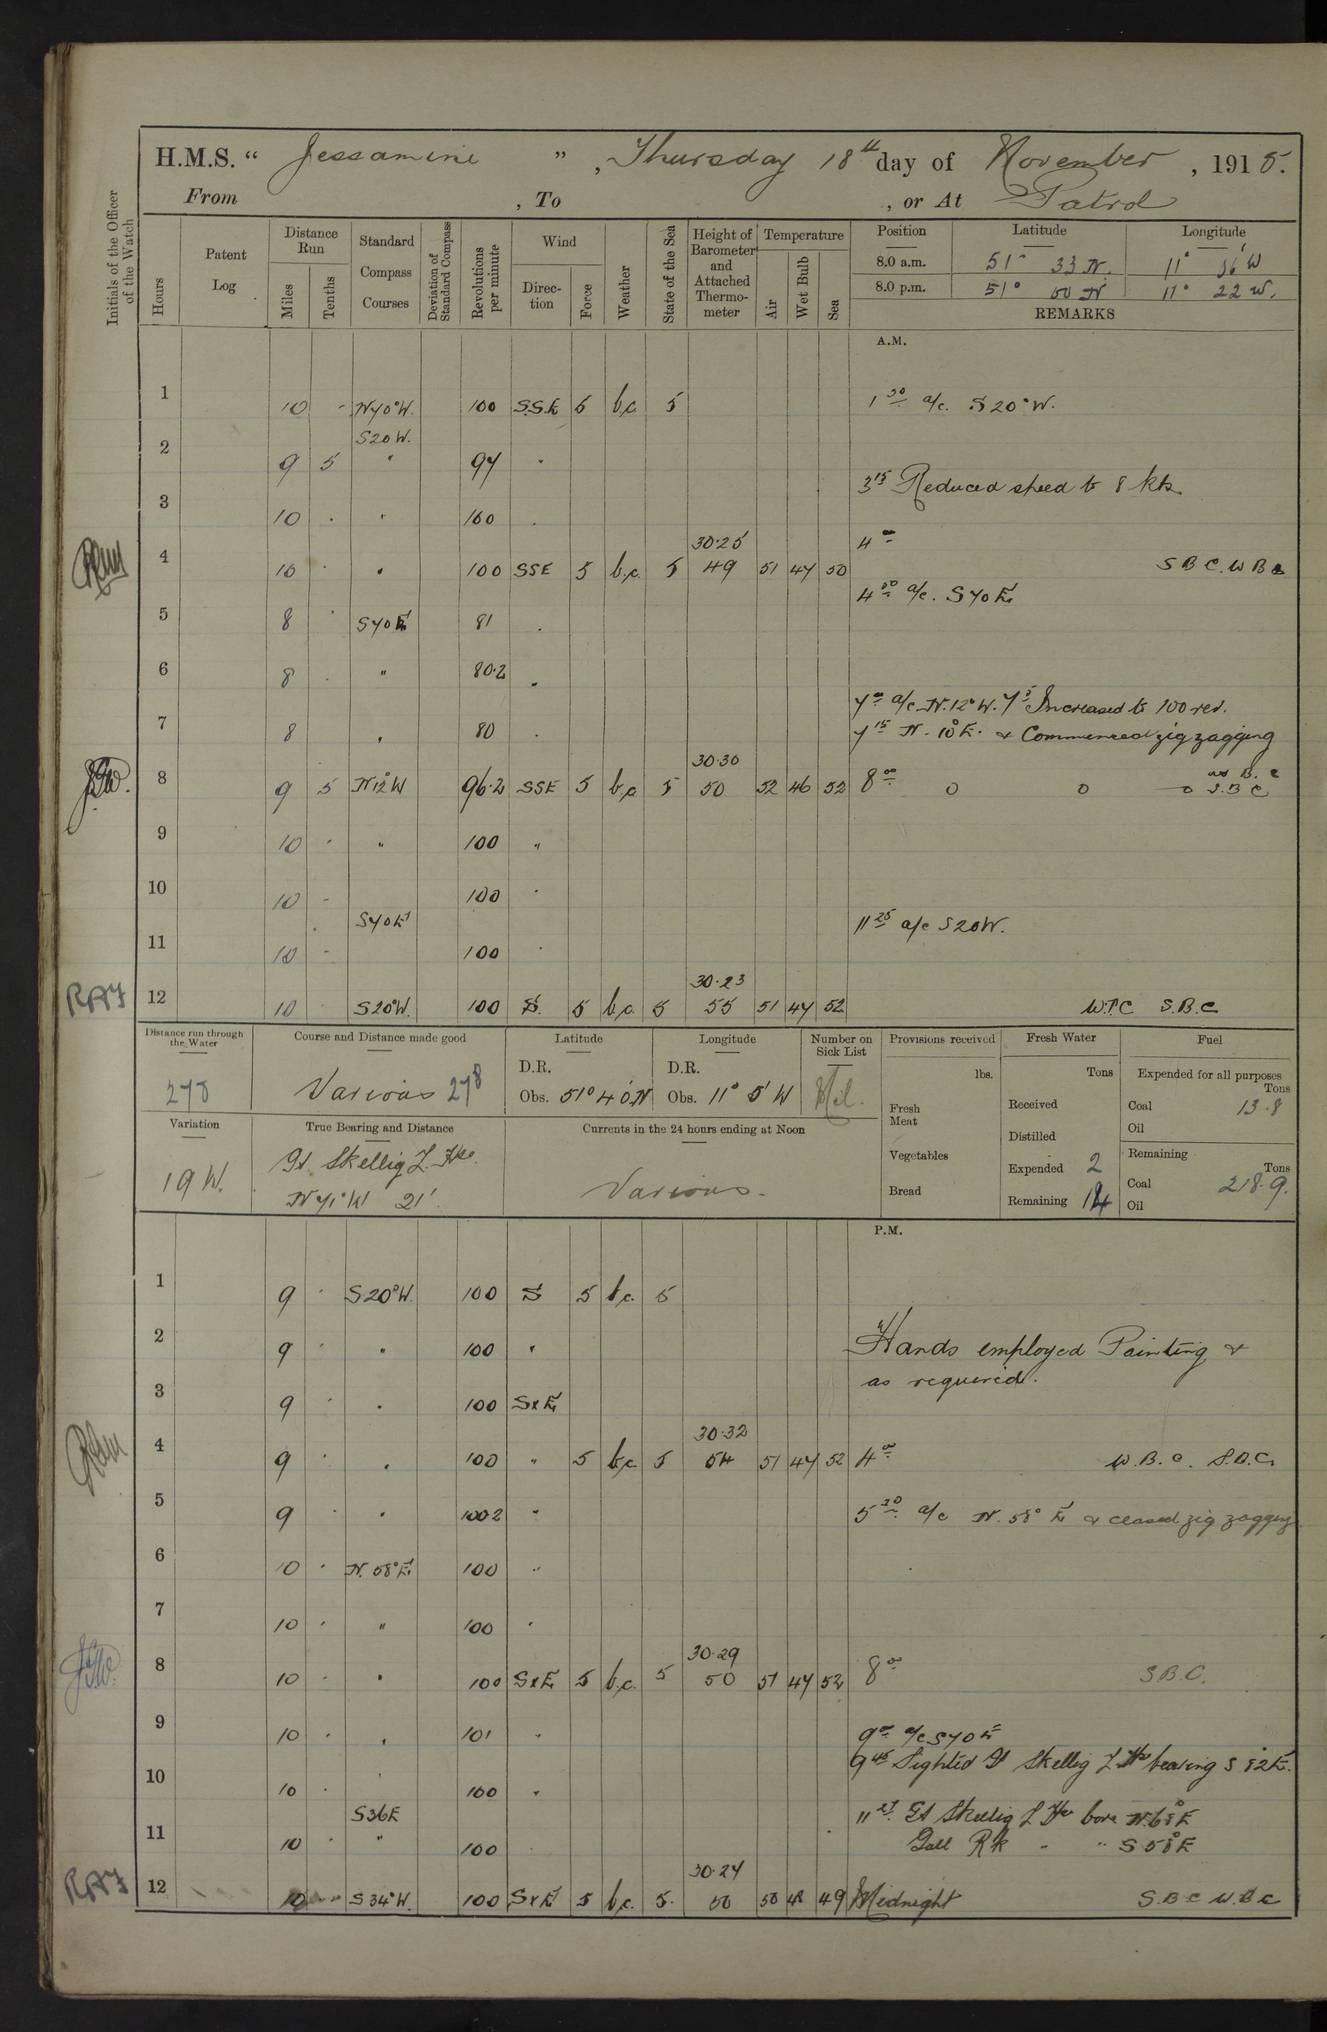 H.M.S. “ Jessamine ” , Thursday 18th day of November , 1915.
From , To , or At Patrol
Initials of the Officer of the Watch
Hours
Patent Log
Distance Run
Miles
Tenths
Standard Compass Courses
Deviation of Standard Compass
Revolutions per minute
Wind
Direc-tion
Force
Weather
State of the Sea
Height of Barometer and Attached Thermo-meter
Temperature
Air
Wet Bulb
Sea
Position Latitude Longitude
8.0 a.m. 51° 33 N. 11° 36' W
8.0 p.m. 51° 50 N 11° 22 W.
REMARKS
A.M.
1 10 - N70°W. 100 S.S.E 5 bc 5 1 30 a/c. S20°W.
S20W.
2 9 5 " 97 "
3 15 Reduced speed to 8 kts
3 10 . " 100 .
30.25 4 00
4 10 . " 100 SSE 5 b.c. 5 49 51 47 50 S B C. W B C
4 00 a/c. S70E
5 8 . S70E 81 .
6 8 . " 80.2 "
7 00 a/c N.12°W. 7 5 Increased to 100 rev.
7 8 " 80 . 7 15 N. 10°E. & Commenced zig zagging
30.30
8 9 5 N12°W 96.2 SSE 5 bc 5 50 52 46 52 8 00 o o o S.B C
9 10 - " 100 "
10 10 - 100 "
S70E 11 25 a/c S20W.
11 10 - 100 "
30.23
RAJ 12 10 S20°W. 100 S. 5 b.c. 5 55 51 47 52 W.T.C S.B.C
Distance run through the Water
278
Course and Distance made good
Various 278
Latitude
D.R.
Obs. 51° 40' N
Longitude
D.R.
Obs. 11° 5' W
Number on Sick List
Nil.
Provisions received
lbs.
Fresh Meat
Vegetables
Bread
Fresh Water
Tons
Received
Distilled
Expended 2
Remaining 14
Fuel
Expended for all purposes
Tons
Coal 13.8
Oil
Remaining
Tons
Coal 218.9.
Oil
Variation
19 W.
True Bearing and Distance
Gt. Skellig L. Ho.
N71°W 21'
Currents in the 24 hours ending at Noon
Various.
P.M.
1 9 . S20°W. 100 S 5 b.c. 5
2 9 . " 100 " Hands employed Painting &
as required.
3 9 . " 100 SxE
30.32
4 9 . " 100 " 5 b.c 5 54 51 47 52 4 00 W.B.C. S.B.C.
5 9 . " 100.2 " 5 30 a/c N. 58° E & ceased zig zagging
6 10 . N. 58°E 100 "
7 10 . " 100 "
30.29
8 10 . " 100 SxE 5 b.c. 5 50 51 47 52 8 00 S.B.C.
9 10 . " 101 " 9 00 a/c S70E
9 45 Sighted Gt Skellig L Ho bearing S 82°E.
10 10 . ' 100 "
S36E 11 27 Gt Skellig L Ho bore N.68°E
11 10 . " 100 Gull Rk " " S 58°E
30.24
RAJ 12 10 S34°W. 100 SxE 5 b.c. 5. 50 50 48 49 Midnight S.B C W.B.C